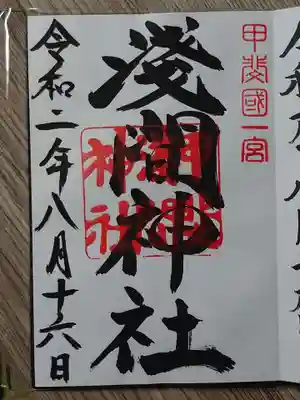 甲斐國一宮
淺間神社
令和二年八月十六日